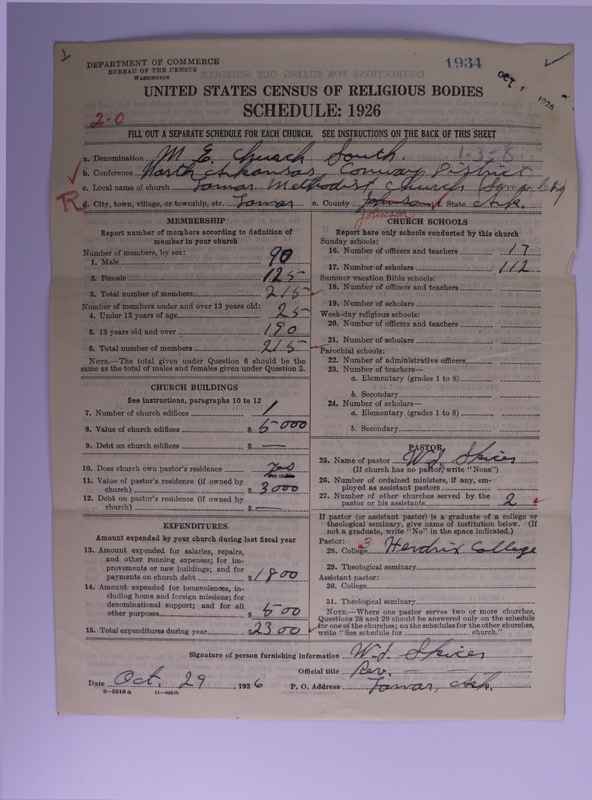 DEPARTMENT OF COMMERCE
BUREAU OF THE CENSUS
WASHINGTON
1934
OCT 1926
UNITED STATES CENSUS OF RELIGIOUS BODIES
SCHEDULE: 1926
2-0
FILL OUT A SEPARATE SCHEDULE FOR EACH CHURCH. SEE INSTRUCTIONS ON THE BACK OF THIS SHEET
a. Denomination M. E. Church South. 1-3-8
b. Conference North Arkansas, Conway District
c. Local name of church Lamar Methodist Church
R d. City, town, village, or township, etc. Lamar e. County Johnson State Ark.
Johnson
MEMBERSHIP
Report number of members according to definition of
member in your church
Number of members, by sex:
1. Male 90
2. Female 125
3. Total number of members 215
Number of members under and over 13 years old:
4. Under 13 years of age 25
5. 13 years old and over 190
6. Total number of members 215
NOTE.—The total given under Question 6 should be the
same as the total of males and females given under Question 3.
CHURCH BUILDINGS
See instructions, paragraphs 10 to 12
7. Number of church edifices 1
8. Value of church edifices $ 5000
9. Debt on church edifices $ —
10. Does church own pastor's residence yes
11. Value of pastor's residence (if owned by
church) $ 3000
12. Debt on pastor's residence (if owned by
church) $ —
EXPENDITURES
Amount expended by your church during last fiscal year
13. Amount expended for salaries, repairs,
and other running expenses; for im-
provements or new buildings; and for
payments on church debt $ 1800
14. Amount expended for benevolences, in-
cluding home and foreign missions; for
denominational support; and for all
other purposes $ 500
15. Total expenditures during year $ 2300
CHURCH SCHOOLS
Report here only schools conducted by this church
Sunday schools:
16. Number of officers and teachers 17
17. Number of scholars 112
Summer vacation Bible schools:
18. Number of officers and teachers
19. Number of scholars
Week-day religious schools:
20. Number of officers and teachers
21. Number of scholars
Parochial schools:
22. Number of administrative officers
23. Number of teachers—
a. Elementary (grades 1 to 8)
b. Secondary
24. Number of scholars—
a. Elementary (grades 1 to 8)
b. Secondary
PASTOR
25. Name of pastor W. J. Spicer
(If church has no pastor, write "None")
26. Number of ordained ministers, if any, em-
ployed as assistant pastors
27. Number of other churches served by the
pastor or his assistants 2
If pastor (or assistant pastor) is a graduate of a college or
theological seminary, give name of institution below. (If
not a graduate, write "No" in the space indicated.)
Pastor:
28. College 3 Hendrix College
29. Theological seminary
Assistant pastor:
30. College
31. Theological seminary
NOTE.—Where one pastor serves two or more churches,
Questions 28 and 29 should be answered only on the schedule
for one of the churches; on the schedules for the other churches
write "See schedule for church."
Signature of person furnishing information W. J. Spicer
Official title Rev.
Date Oct. 29, 1926 P. O. Address Lamar, Ark.